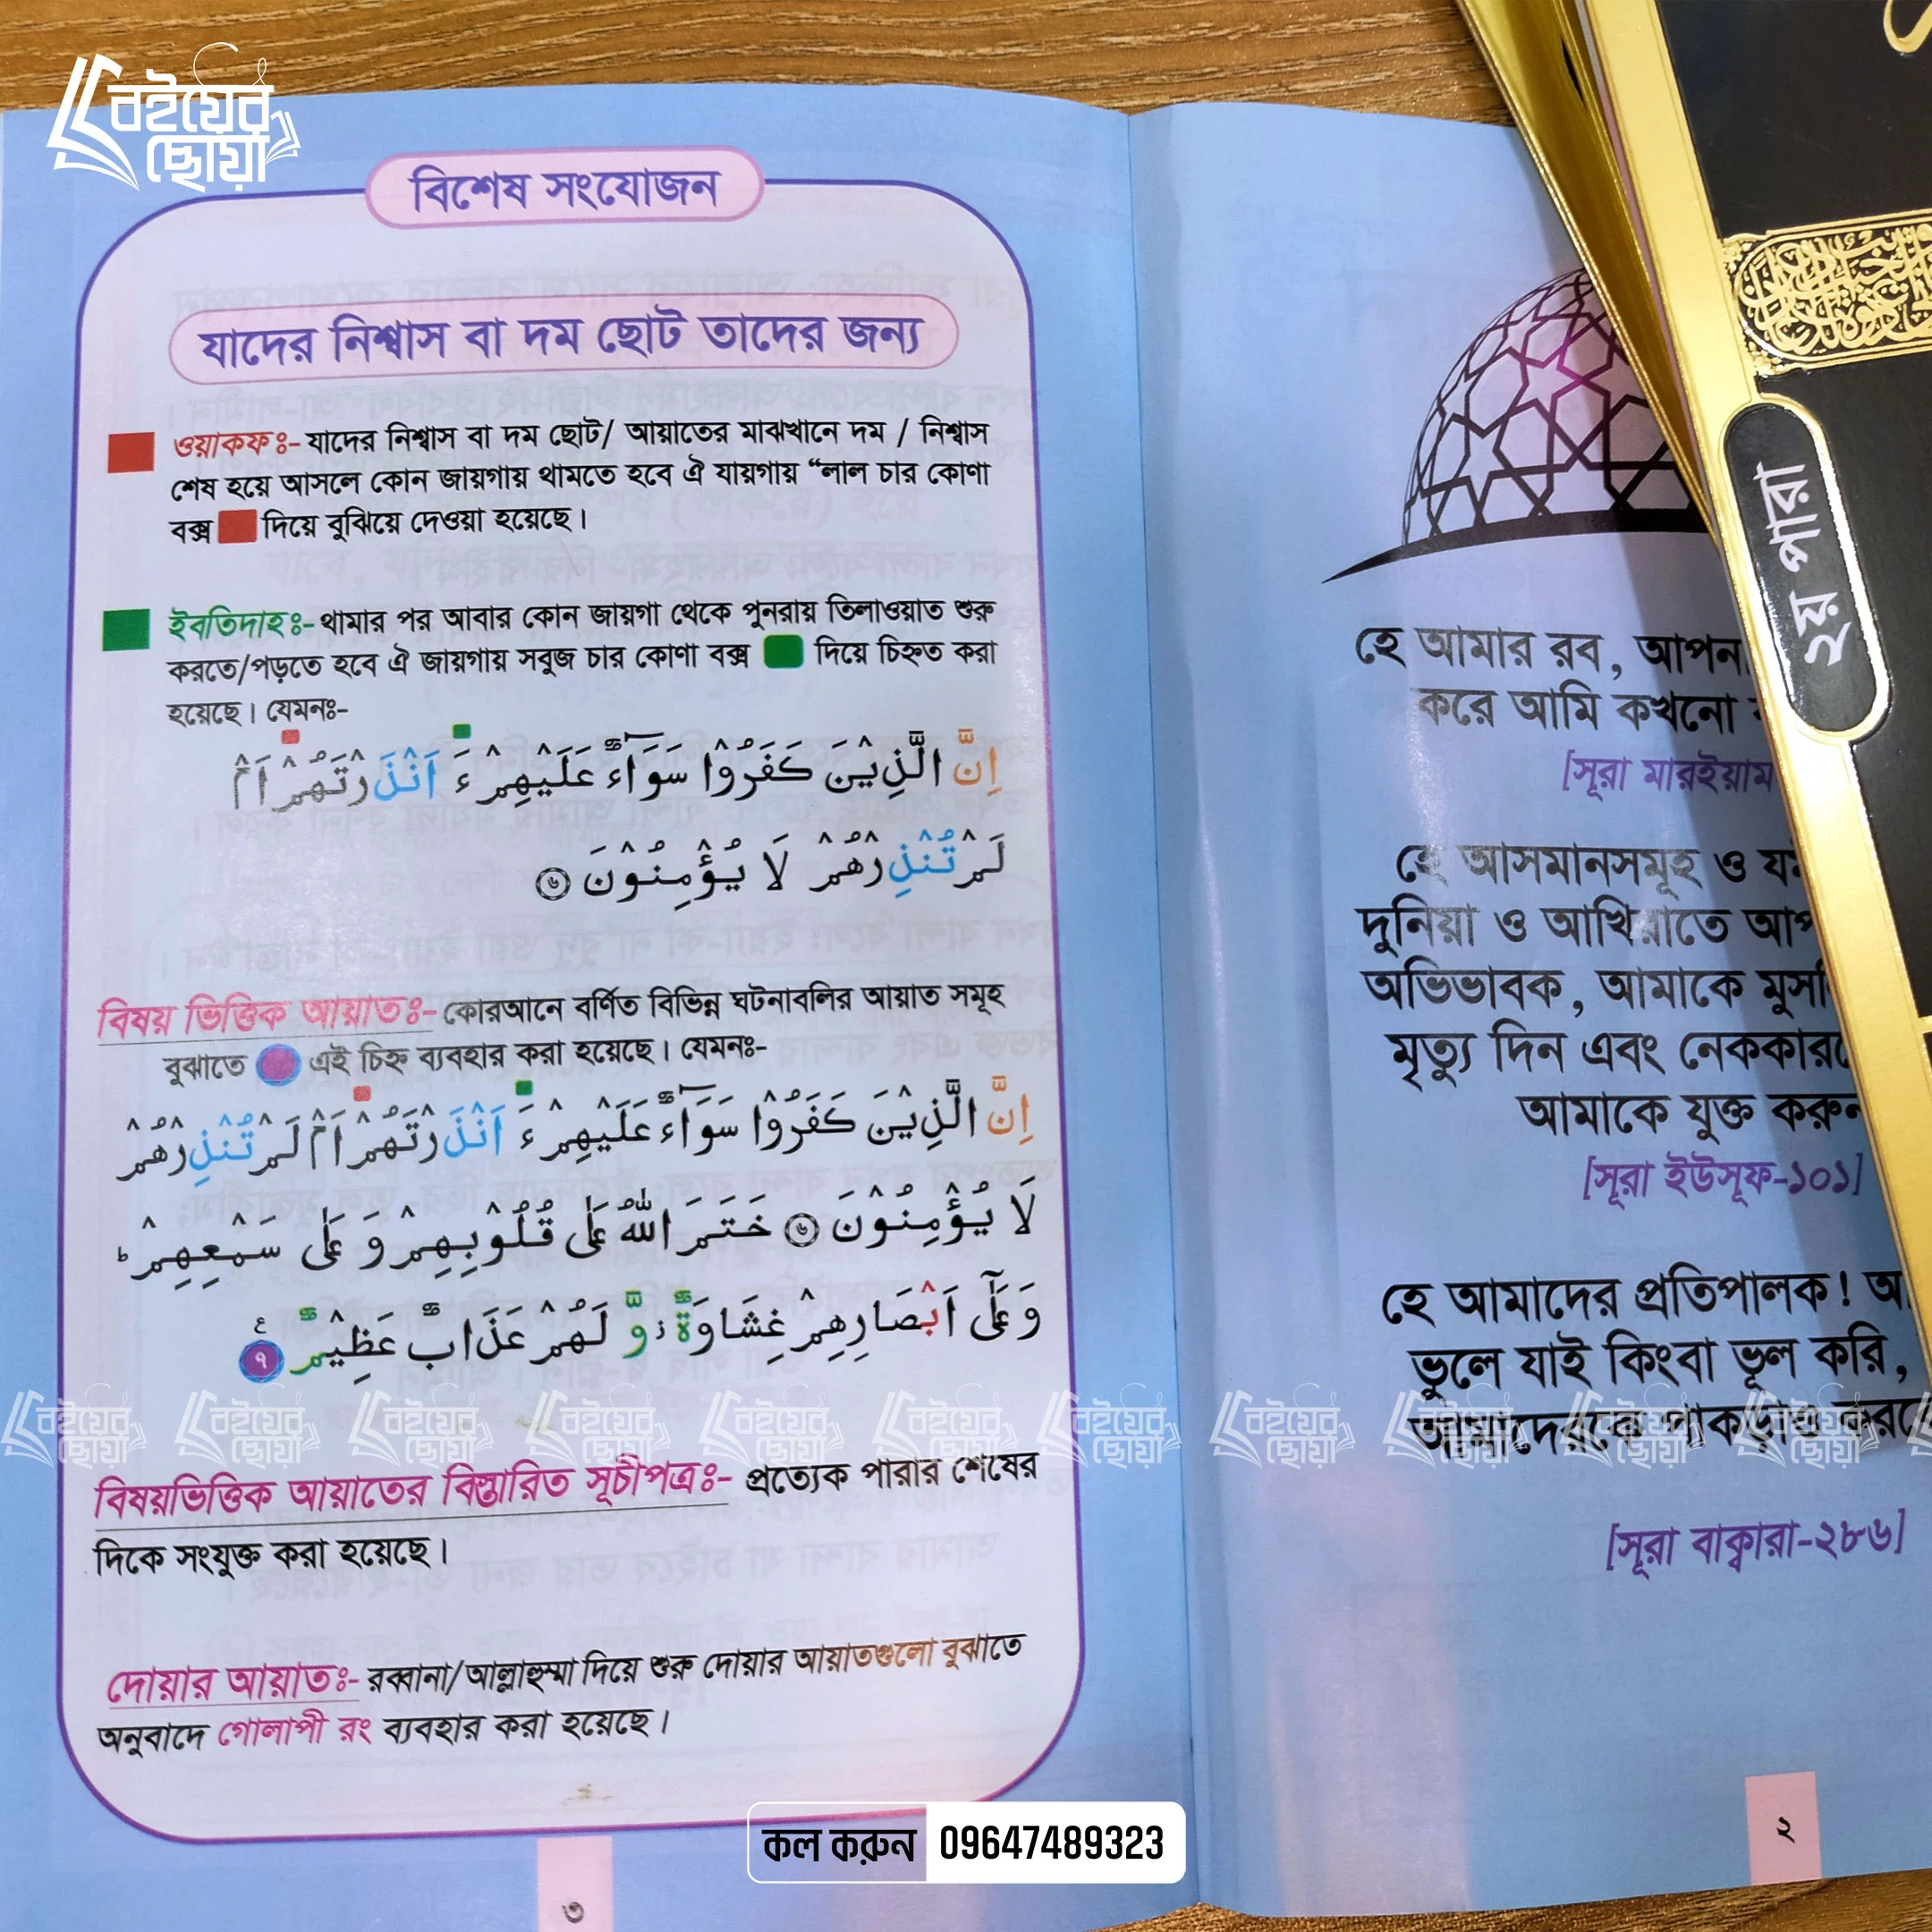 বইয়ের
ছোঁয়া
বিশেষ সংযোজন
যাদের নিশ্বাস বা দম ছোট তাদের জন্য
ওয়াকফঃ- যাদের নিশ্বাস বা দম ছোট/ আয়াতের মাঝখানে দম / নিশ্বাস
শেষ হয়ে আসলে কোন জায়গায় থামতে হবে ঐ যায়গায় “লাল চার কোণা
বক্স দিয়ে বুঝিয়ে দেওয়া হয়েছে।
ইবতিদাহঃ- থামার পর আবার কোন জায়গা থেকে পুনরায় তিলাওয়াত শুরু
করতে/পড়তে হবে ঐ জায়গায় সবুজ চার কোণা বক্স দিয়ে চিহ্নত করা
হয়েছে। যেমনঃ-
اِنَّ الَّذِيْنَ كَفَرُوْا سَوَآءٌ عَلَيْهِمْ ءَ اَنْذَرْتَهُمْ اَمْ
لَمْ تُنْذِرْهُمْ لَا يُؤْمِنُوْنَ ۝٦
বিষয় ভিত্তিক আয়াতঃ- কোরআনে বর্ণিত বিভিন্ন ঘটনাবলির আয়াত সমূহ
বুঝাতে এই চিহ্ন ব্যবহার করা হয়েছে। যেমনঃ-
اِنَّ الَّذِيْنَ كَفَرُوْا سَوَآءٌ عَلَيْهِمْ ءَ اَنْذَرْتَهُمْ اَمْ لَمْ تُنْذِرْهُمْ
لَا يُؤْمِنُوْنَ ۝٦ خَتَمَ اللّٰهُ عَلٰى قُلُوْبِهِمْ وَ عَلٰى سَمْعِهِمْ ؕ
وَ عَلٰٓى اَبْصَارِهِمْ غِشَاوَةٌ ز وَّ لَهُمْ عَذَابٌ عَظِيْمٌ ۝٧ ع
বিষয়ভিত্তিক আয়াতের বিস্তারিত সূচীপত্রঃ- প্রত্যেক পারার শেষের
দিকে সংযুক্ত করা হয়েছে।
দোয়ার আয়াতঃ- রব্বানা/আল্লাহুম্মা দিয়ে শুরু দোয়ার আয়াতগুলো বুঝাতে
অনুবাদে গোলাপী রং ব্যবহার করা হয়েছে।
৩
হে আমার রব, আপনা
করে আমি কখনো
[সূরা মারইয়াম
হে আসমানসমূহ ও যম
দুনিয়া ও আখিরাতে আপ
অভিভাবক, আমাকে মুসলি
মৃত্যু দিন এবং নেককারদে
আমাকে যুক্ত করুন
[সূরা ইউসূফ-১০১]
হে আমাদের প্রতিপালক! আ
ভুলে যাই কিংবা ভূল করি,
আমাদেরকে পাকড়াও করবে
[সূরা বাক্বারা-২৮৬]
২
২য় পারা
কল করুন 09647489323